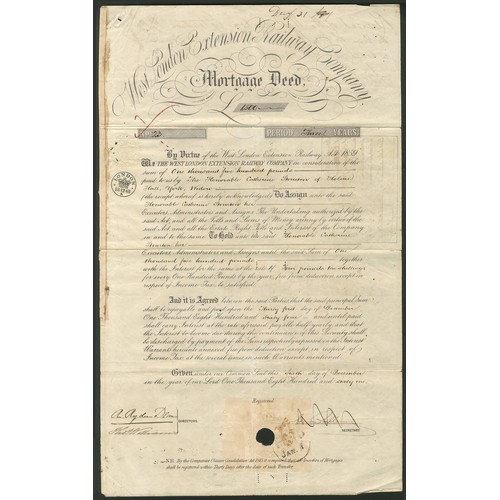 Decr 31
West London Extension Railway Company
Mortgage Deed.
£1500
No 22 PERIOD Three YEARS
By Virtue of the West London Extension Railway Act 1859
We THE WEST LONDON EXTENSION RAILWAY COMPANY in consideration of the
sum of One thousand five hundred pounds
paid to us by The Honorable Catherine
Hall, York, Widow
(the receipt whereof is hereby acknowledged) Do Assign unto the said
Honorable Catherine her
Executors Administrators and Assigns The Undertaking authorized by the
said Act and all the Tolls and Sums of Money arising by virtue of the
said Act and all the Estate Right Title and Interest of the Company
in and to the same To Hold unto the said Honorable Catherine
her
Executors Administrators and Assigns until the said Sum of One
thousand five hundred pounds, together
with the Interest for the same at the rate of Four pounds ten shillings
for every One Hundred Pounds by the year, free from deduction except in
respect of Income Tax be satisfied.
And it is Agreed between the said Parties that the said principal Sum
shall be repayable and paid upon the Thirty first day of December
One Thousand Eight Hundred and Sixty four and until paid
shall carry Interest at the rate aforesaid payable half yearly and that
the Interest to become due during the continuance of this Security shall
be discharged by payment of the Sums respectively expressed in the Interest
Warrants hereunto annexed free from deduction except in respect of
Income Tax, at the several dates in such Warrants mentioned.
Given under our Common Seal this Sixth day of December
in the year of our Lord One Thousand Eight Hundred and Sixty one
Registered
DIRECTORS
SECRETARY
JAN. 1
N.B. By the Companies Clauses Consolidation Act 1845 it is required that all Transfers of Mortgages
shall be registered within Thirty Days after the date of such Transfer.
LONDON